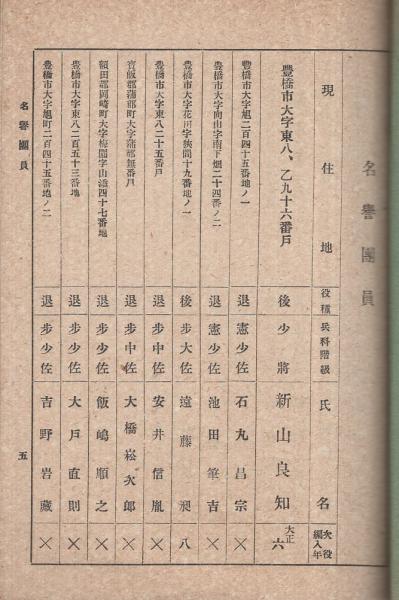 名譽團員
現住地 役種 兵科階級 氏名 次役編入年
豐橋市大字東八、乙九十六番戶 後 少將 新山良知 大正六
豐橋市大字旭二百四十五番地ノ一 退 憲少佐 石丸昌宗 ×
豐橋市大字向山字南下畑二十四番ノ二 退 憲少佐 池田筆吉 ×
豐橋市大字花田字狹間十九番地ノ一 後 步大佐 遠藤昶 八
豐橋市大字東八二十五番戶 退 步中佐 安井信胤 ×
寶飯郡蒲郡町大字蒲郡無番戶 退 步中佐 大橋崧次郎 ×
額田郡岡崎町大字梅園字山 四十七番地 退 步少佐 飯嶋順之 ×
豐橋市大字東八二百五十三番地 退 步少佐 大戶直則 ×
豐橋市大字旭町二百四十五番地ノ二 退 步少佐 吉野岩藏 ×
名譽團員
五